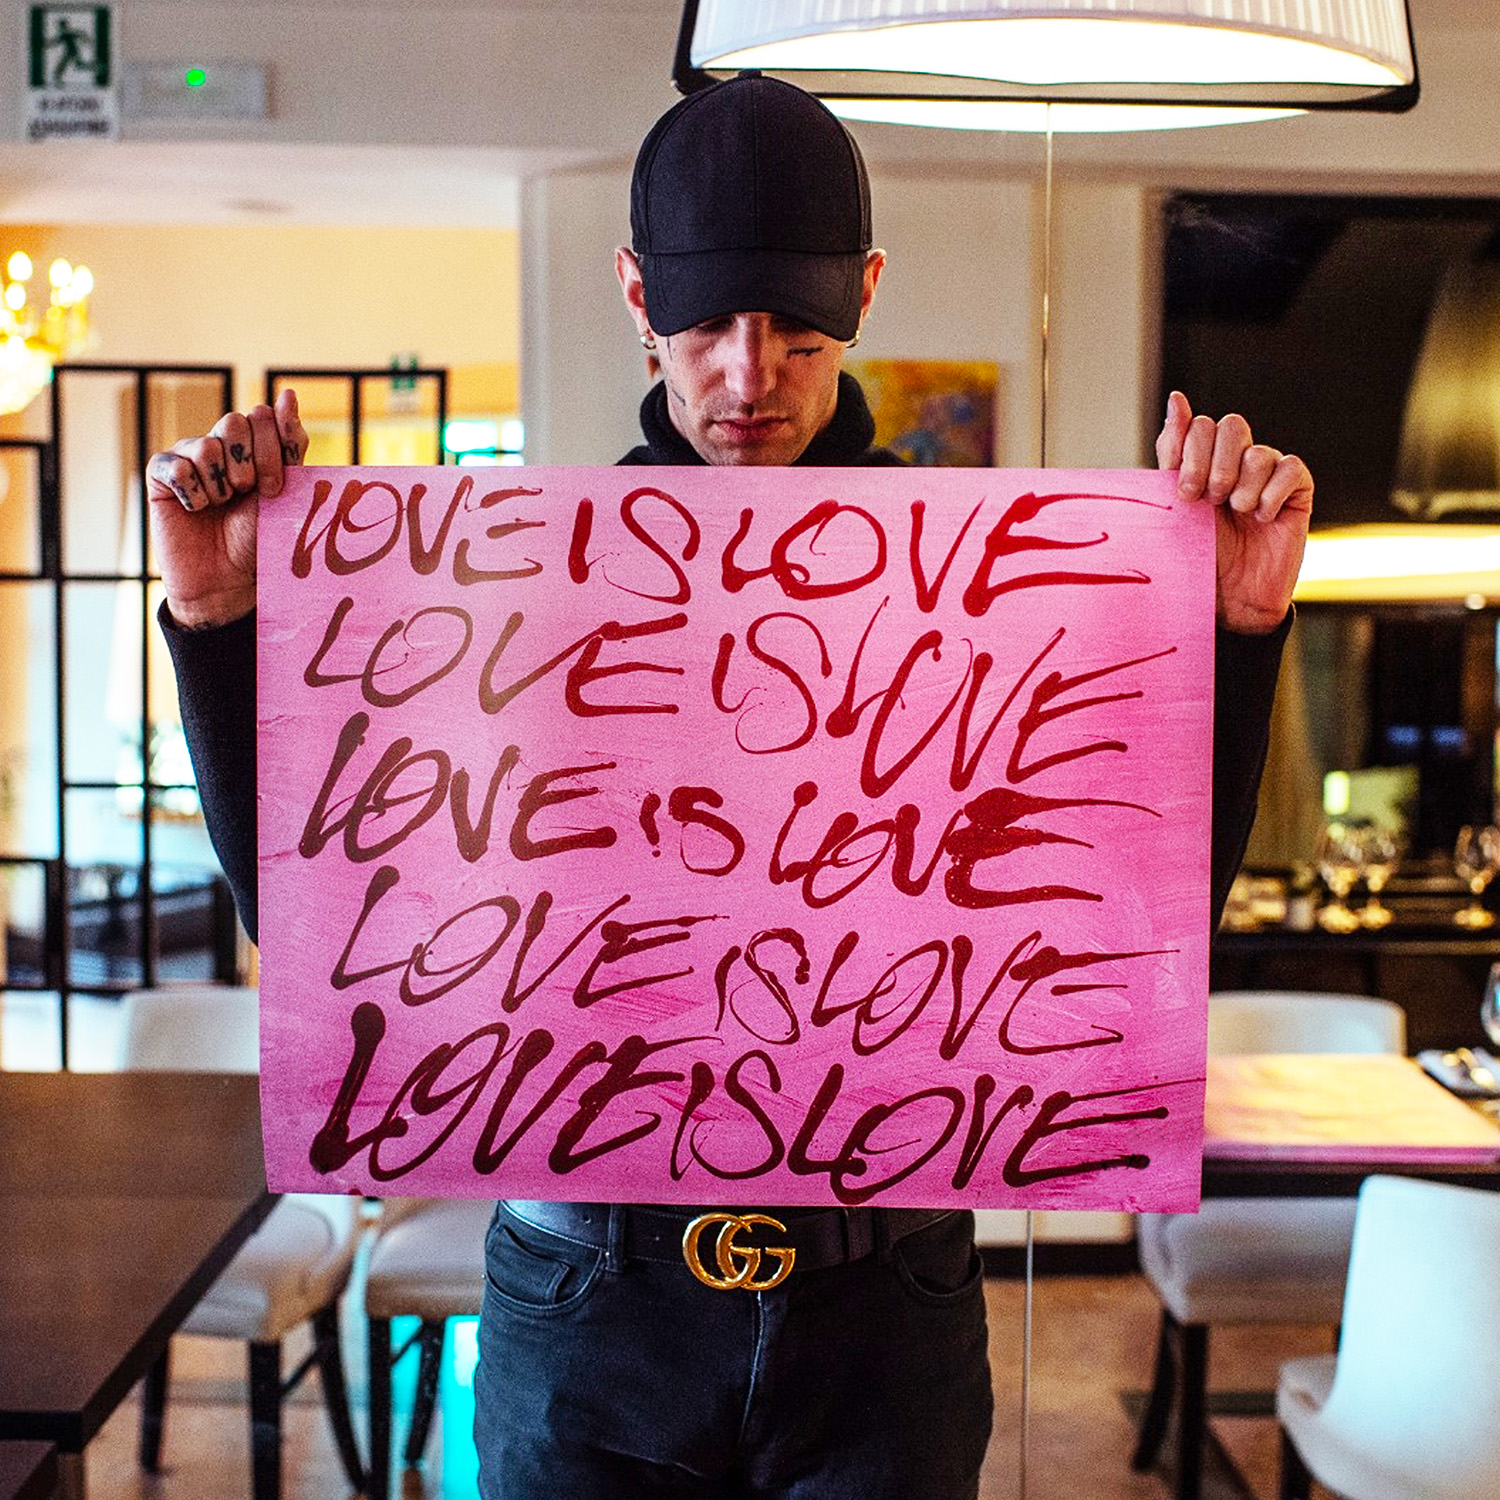 LOVE IS LOVE
LOVE IS LOVE
LOVE iS LOVE
LOVE IS LOVE
LOVE IS LOVE
GG